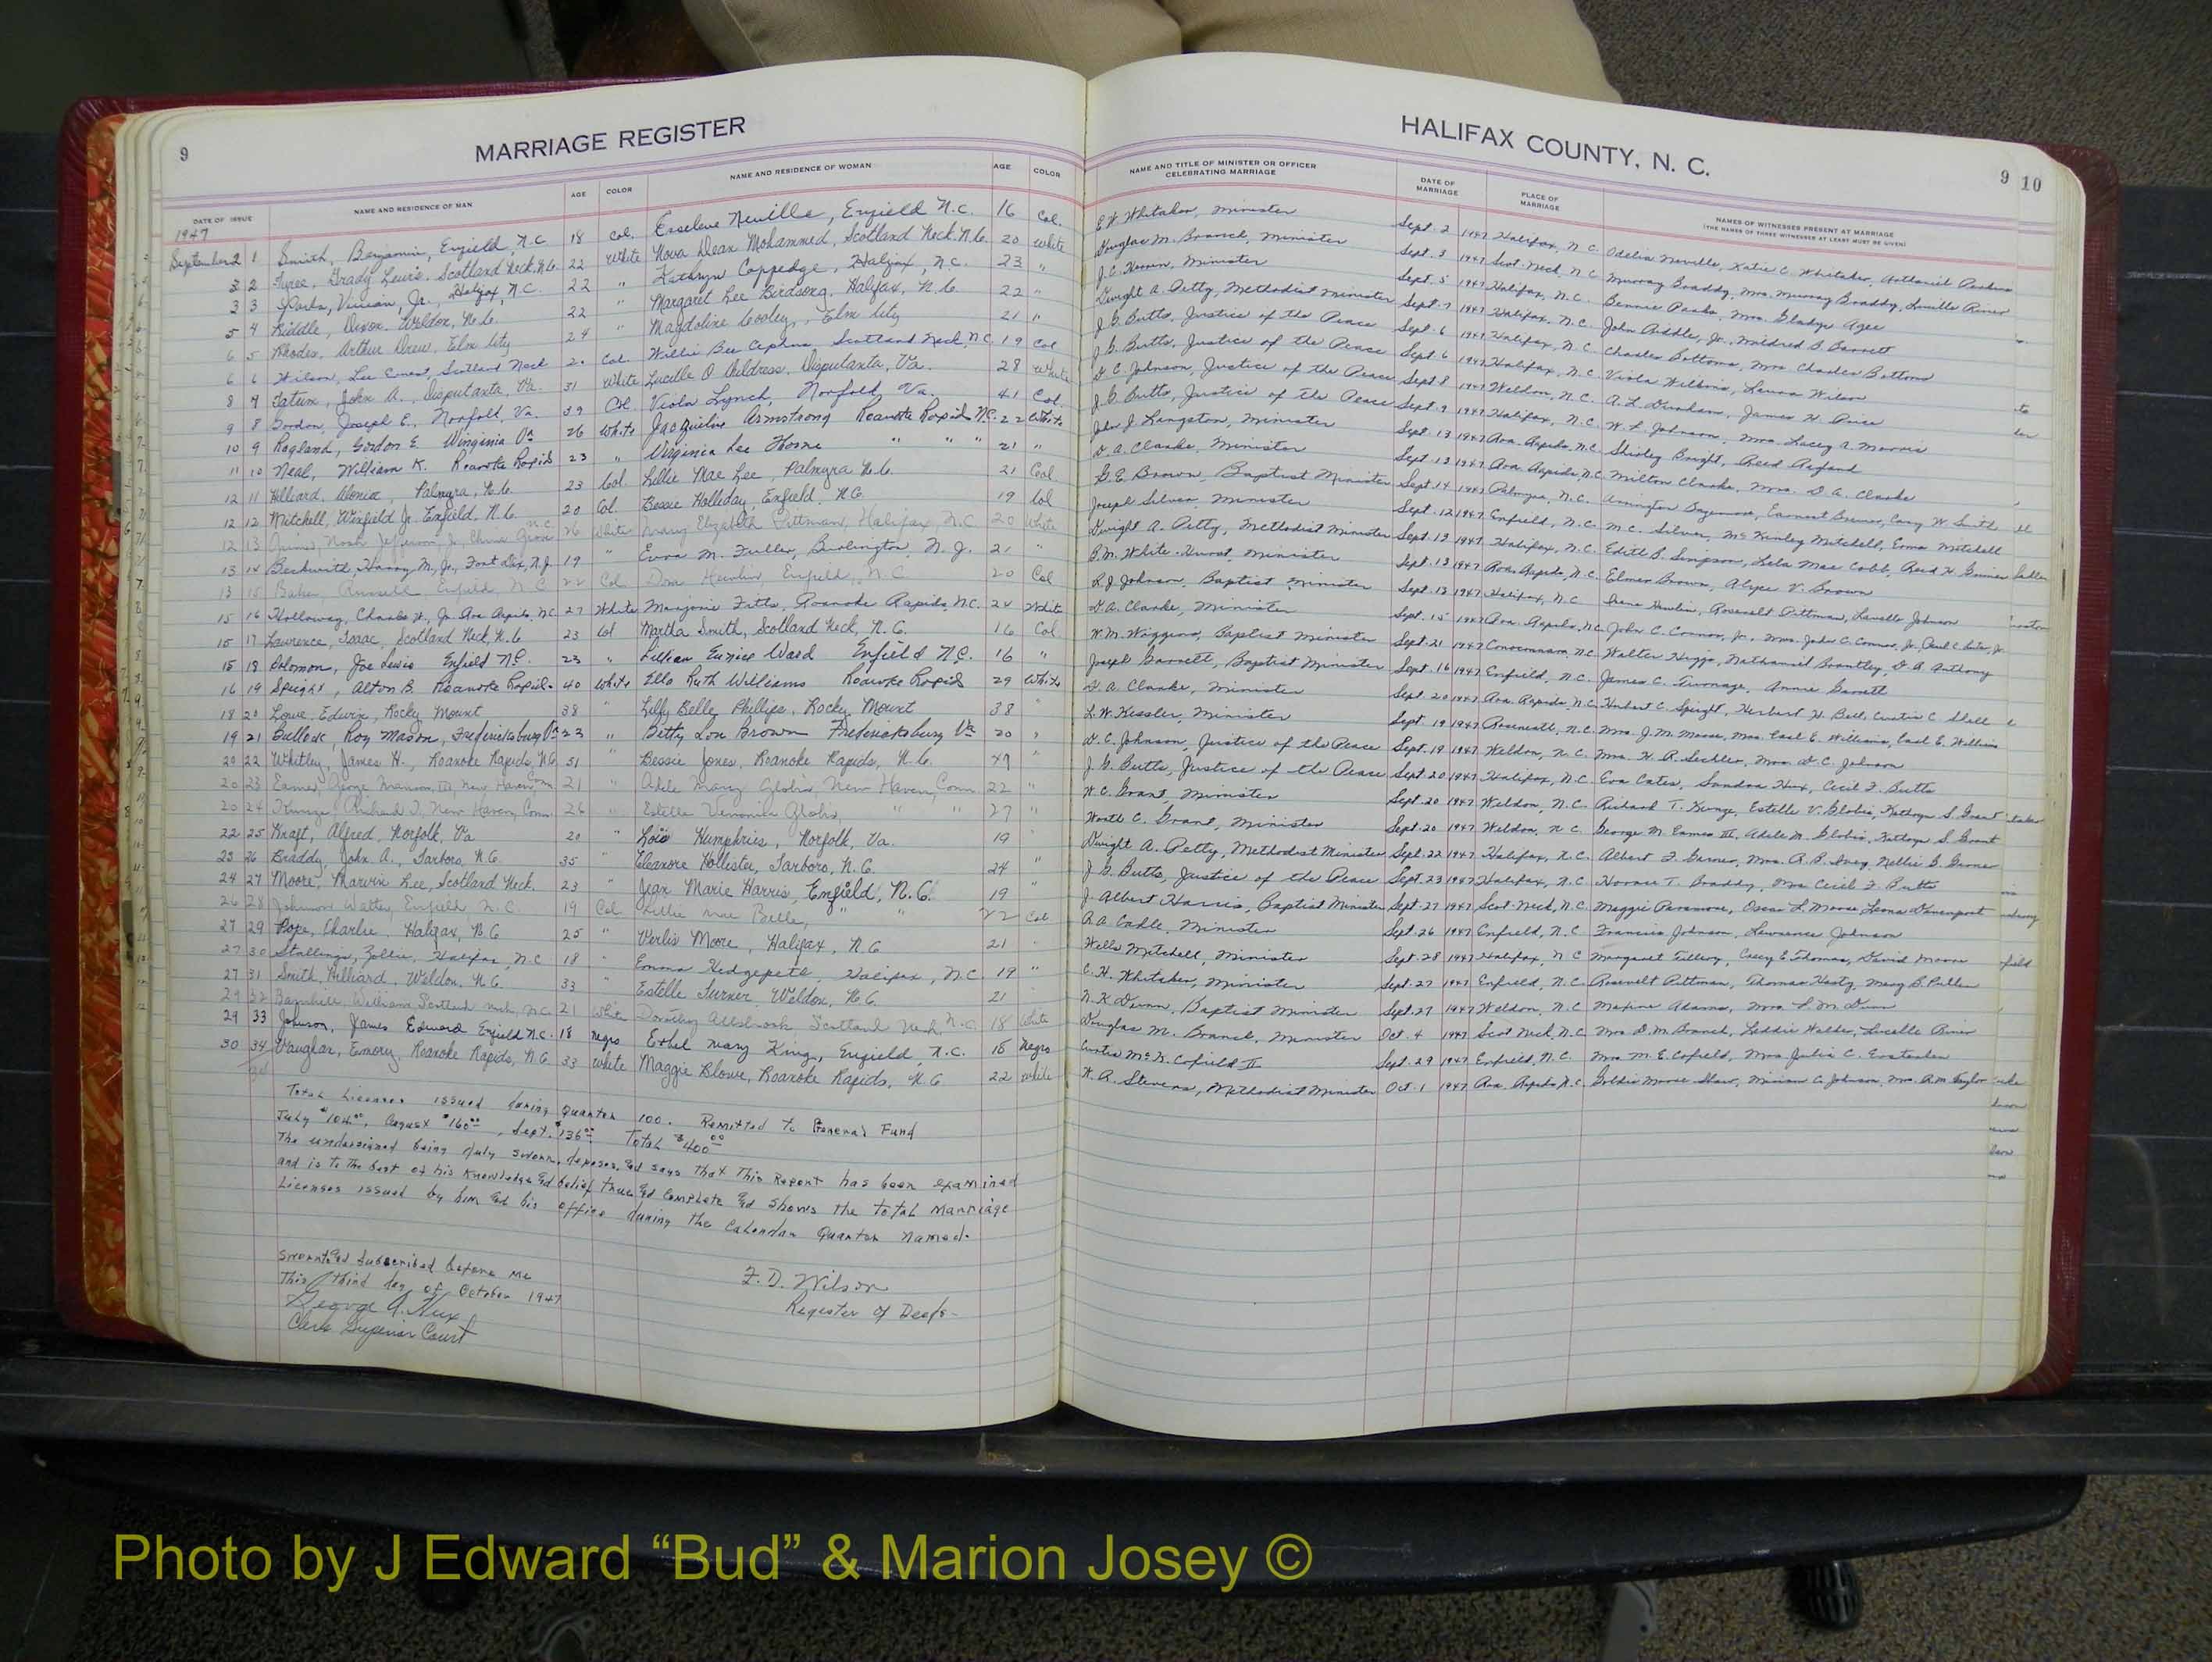 9
MARRIAGE REGISTER
DATE OF ISSUE NAME AND RESIDENCE OF MAN AGE COLOR NAME AND RESIDENCE OF WOMAN AGE COLOR
1947
September 2 1 Smith, Benjamin, Enfield, N.C. 18 Col. Neville, Enfield N.C. 16 Col.
3 2 Grady Lewis, Scotland Neck, N.C. 22 White Nova Dean Mohammed, Scotland Neck, N.C. 20 White
3 3 Parks, Vivian, Jr., Halifax, N.C. 22 " Kathryn Coppedge, Halifax, N.C. 23 "
5 4 Riddle, Weldon, N.C. 22 " Margaret Lee Birdsong, Halifax, N.C. 22 "
6 5 Rhodes, Arthur Drew, Elm City 24 " Magdoline Cooley, Elm City 21 "
6 6 Wilson, Lee Ernest, Scotland Neck Col Willie Bee Scotland Neck, N.C. 19 Col
8 7 Tatum, John A., Disputanta, Va. 31 White Lucille O Childress, Disputanta, Va. 28 White
9 8 Gordon, Joseph E., Norfolk Va. 39 Col Viola Lynch, Norfolk, Va. 41 Col.
10 9 Ragland, Gordon E. Va 26 White Jacqueline Armstrong Roanoke Rapids N.C. 22 White
11 10 Neal, William K. Roanoke Rapids 23 " Virginia Lee Horne " " " 21 "
12 11 Hilliard, Palmyra, N.C. 23 Col. Lillie Mae Lee, Palmyra N.C. 21 Col
12 12 Mitchell, Winfield Jr. Enfield, N.C. 20 Col. Bessie Holliday, Enfield, N.C. 19 Col
12 13 Noah Jefferson, Jr., China Grove N.C. 26 White Mary Elizabeth Pittman, Halifax, N.C. 20 White
13 14 Beckwith, Harry M., Jr., Fort Dix, N.J. 19 " M. Fuller, Burlington, N.J. 21 "
13 15 Baker, Russell, Enfield, N.C. 22 Col Dora Hewlin, Enfield, N.C. 20 Col
15 16 Holloway, Charles H., Jr. Roa Rapids, N.C. 27 White Marjorie Fitts, Roanoke Rapids, N.C. 24 White
15 17 Lawrence, Isaac, Scotland Neck, N.C. 23 Col Martha Smith, Scotland Neck, N.C. 16 Col.
15 18 Solomon, Joe Lewis Enfield N.C. 23 " Lillian Eunice Ward Enfield N.C. 16 "
16 19 Speight, Alton B. Roanoke Rapids 40 White Ella Ruth Williams Roanoke Rapids 29 White
18 20 Lowe, Edwin, Rocky Mount 38 " Lilly Belle Phillips, Rocky Mount 38 "
19 21 Bullock, Roy Mason, Fredericksburg Va 23 " Betty Lou Brown Fredericksburg Va 20 "
20 22 Whitley, James H., Roanoke Rapids, N.C. 51 " Bessie Jones, Roanoke Rapids, N.C. 47 "
20 23 Eames, George Manson, III, New Haven, Conn 21 " Adele Mary Globis, New Haven, Conn. 22 "
20 24 Kunze, Richard T, New Haven, Conn. 26 " Estelle Veronica Globis, " " 27 "
22 25 Kraft, Alfred, Norfolk, Va 20 " Lois Humphries, Norfolk, Va. 19 "
23 26 Braddy, John A., Tarboro, N.C. 35 " Eleanore Hollister, Tarboro, N.C. 24 "
24 27 Moore, Marvin Lee, Scotland Neck. 23 " Jean Marie Harris, Enfield, N.C. 19 "
26 28 Johnson, Walter, Enfield, N.C. 19 Col. Lillie Mae Belle, " " 22 Col
27 29 Pope, Charlie, Halifax, N.C. 25 " Verlis Moore, Halifax, N.C. 21 "
27 30 Stallings, Zollie, Halifax, N.C. 18 " Emma Hedgepeth Halifax, N.C. 19 "
27 31 Smith, Hilliard, Weldon, N.C. 33 " Estelle Turner, Weldon, N.C. 21 "
29 32 William, Scotland Neck, N.C. 21 White Dorothy Allsbrook, Scotland Neck, N.C. 18 White
29 33 Johnson, James Edward Enfield N.C. 18 Negro Ethel Mary King, Enfield, N.C. 18 Negro
30 34 Vaughan, Emory, Roanoke Rapids, N.C. 33 White Maggie Blowe, Roanoke Rapids, N.C 22 White
Total Licenses issued during Quarter 100. Remitted to General Fund
July $104.00, August $160.00, Sept. $136.00 Total $400.00
The undersigned being duly sworn, deposes, and says that This Report has been examined
and is to the best of his knowledge and belief true and complete and shows the total marriage
Licenses issued by him and his office during the Calendar Quarter named.
Sworn to and Subscribed before me
This third day of October 1947
George A. Hux
Clerk Superior Court
F. D. Wilson
Register of Deeds
HALIFAX COUNTY, N. C.
9 10
NAME AND TITLE OF MINISTER OR OFFICER CELEBRATING MARRIAGE DATE OF MARRIAGE PLACE OF MARRIAGE NAMES OF WITNESSES PRESENT AT MARRIAGE
(THE NAMES OF THREE WITNESSES AT LEAST MUST BE GIVEN)
Whitaker, Minister Sept. 2 1947 Halifax, N.C. Odelia Neville, Katie C. Whitaker, Nathaniel
Douglas M. Branch, Minister Sept. 3 1947 Scot. Neck, N.C. Murray Braddy, Mrs. Murray Braddy, Louille
J.C. Minister Sept. 5 1947 Halifax, N.C. Bennie Parks, Mrs. Gladys Agee
Dwight A. Petty, Methodist Minister Sept. 7 1947 Halifax, N.C. John Riddle, Jr., Mildred B. Barrett
J.G. Butts, Justice of the Peace Sept. 6 1947 Halifax, N.C. Charles Bottoms, Mrs Charles Bottoms
J.G. Butts, Justice of the Peace Sept. 6 1947 Halifax, N.C. Viola Wilkins, Laura Wilson
D.C. Johnson, Justice of the Peace Sept 8 1947 Weldon, N.C. A.L. Dunham, James H. Price
J.G. Butts, Justice of the Peace Sept. 9 1947 Halifax, N.C. W.L. Johnson, Mrs. Lacy A. Morris
John J. Langston, Minister Sept. 13 1947 Roa. Rapids, N.C. Shirley Bright, Reed
D.A. Clarke, Minister Sept. 13 1947 Roa. Rapids, N.C. Milton Clarke, Mrs. D.A. Clarke
G.E. Brown, Baptist Minister Sept. 14 1947 Palmyra, N.C. Arrington Bazemore, Earnest Cary W. Smith
Joseph Silver, Minister Sept. 12 1947 Enfield, N.C. M.C. Silver, McKinley Mitchell, Erma Mitchell
Dwight A. Petty, Methodist Minister Sept. 13 1947 Halifax, N.C. Edith B. Simpson, Lela Mae Cobb, Reid H.
B.M. White Hurst, Minister Sept. 13 1947 Roa. Rapids, N.C. Elmer Brown, Alyce V. Brown
R.J. Johnson, Baptist Minister Sept. 13 1947 Halifax, N.C. Irene Hewlin, Roosevelt Pittman, Louille Johnson
D.A. Clarke, Minister Sept. 15 1947 Roa. Rapids, N.C. John C. Connor, Jr., Mrs. John C. Connor, Jr.
W.M. Wiggins, Baptist Minister Sept. 21 1947 N.C. Walter Higgs, Nathaniel Brantley, D.A. Anthony
Joseph Garrett, Baptist Minister Sept. 16 1947 Enfield, N.C. James C. Turnage, Annie Garrett
D.A. Clarke, Minister Sept. 20 1947 Roa. Rapids, N.C. Herbert C. Speight, Herbert H. Bell, Curtis C. Shell
L.W. Kessler, Minister Sept. 19 1947 Roseneath, N.C. Mrs. J.M. Moore, Mrs. Earl E. Williams, Earl E. Williams
D.C. Johnson, Justice of the Peace Sept. 19 1947 Weldon, N.C. Mrs. H.R. Mrs. D.C. Johnson
J.G. Butts, Justice of the Peace Sept. 20 1947 Halifax, N.C. Eva Cates, Sandra Hux, Cecil F. Butts
W.C. Grant, Minister Sept. 20 1947 Weldon, N.C. Richard T. Kunze, Estelle V. Globis, Kathryn S. Grant
Worth C. Grant, Minister Sept. 20 1947 Weldon, N.C. George M. Eames III, Adele M. Globis, Kathryn S. Grant
Dwight A. Petty, Methodist Minister Sept. 22 1947 Halifax, N.C. Albert F. Garner, Mrs. R.P. Ivey, Nellie B. Garner
J.G. Butts, Justice of the Peace Sept. 23 1947 Halifax, N.C. Horace T. Braddy, Mrs Cecil F. Butts
J. Albert Harris, Baptist Minister Sept. 27 1947 Scot. Neck, N.C. Maggie Paramore, Oscar L. Moore, Leona Davenport
R.A. Cadle, Minister Sept. 26 1947 Enfield, N.C. Francis Johnson, Lawrence Johnson
Wells Mitchell, Minister Sept. 28 1947 Halifax, N.C Margaret Tillery, Casey E. Thomas, David Moore
C.H. Whitaker, Minister Sept. 27 1947 Enfield, N.C. Roosevelt Pittman, Thomas Hasty, Mary B. Pullen
N.K. Dunn, Baptist Minister Sept. 27 1947 Weldon, N.C Maxine Adams, Mrs. L.M. Dunn
Douglas M. Branch, Minister Oct. 4 1947 Scot Neck, N.C. Mrs D.M. Branch, Liddie Walder, Louille
Curtis McK. Cofield II Sept. 29 1947 Enfield, N.C. Mrs M.E. Cofield, Mrs. Julia C.
W.A. Stevens, Methodist Minister Oct. 1 1947 Roa. Rapids, N.C. Goldie Moore Shaw, Miriam C. Johnson, Mrs. R.M. Taylor
Photo by J Edward “Bud” & Marion Josey ©